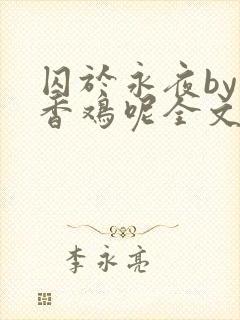 囚於永夜by
香鸡呢全文
李永亮